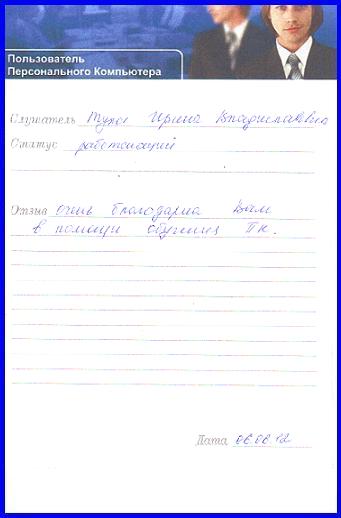 Пользователь
Персонального Компьютера
Слушатель Ирина Владиславовна
Статус работающий
Отзыв очень благодарна Вам
в помощи обучении ПК.
Дата 06.06.12